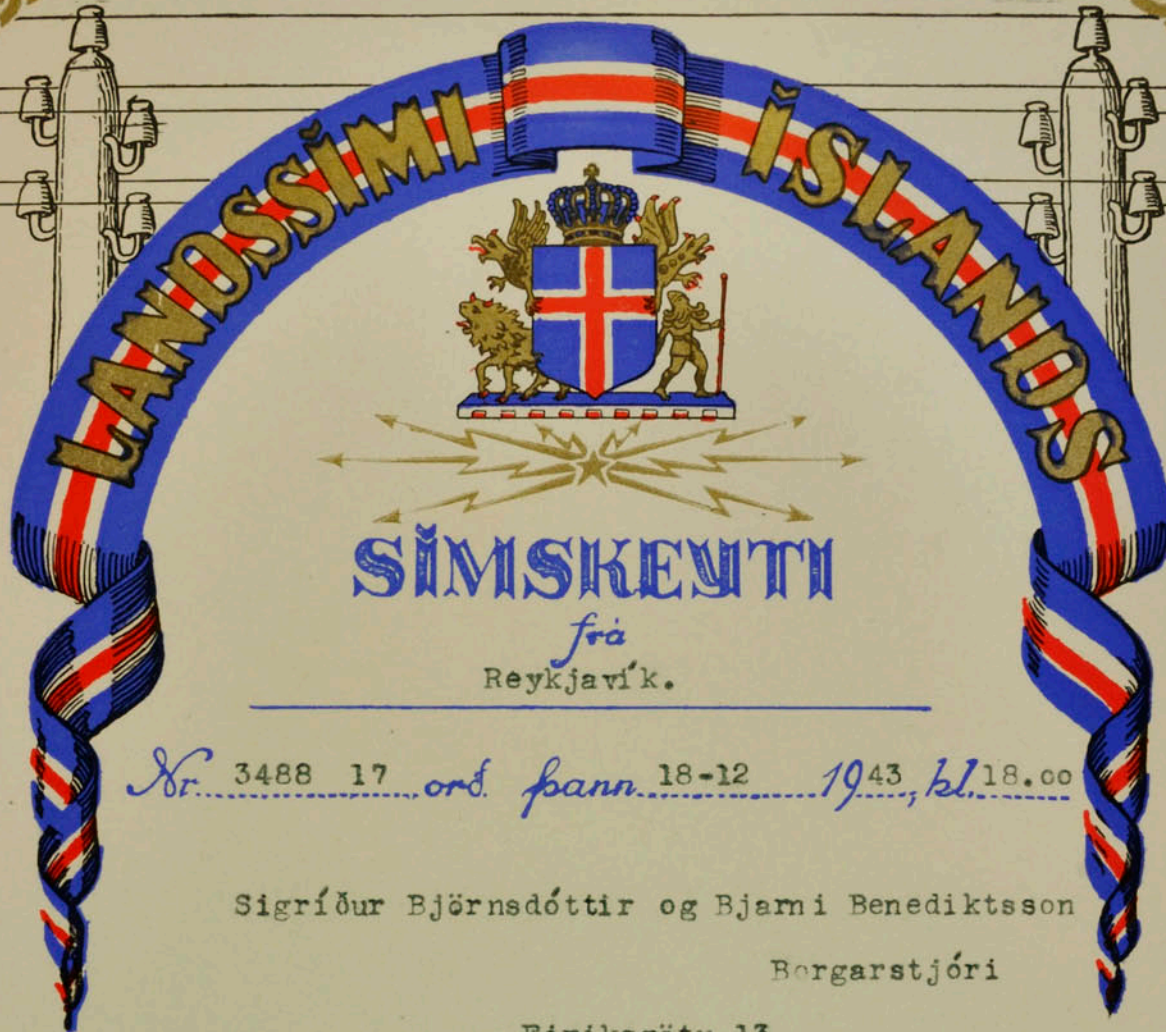 LANDSSÍMI ÍSLANDS
SÍMSKEYTI
frá
Reykjavík.
Nr. 3488 17 orð. þann 18-12 1943, kl. 18.00
Sigríður Björnsdóttir og Bjarni Benediktsson
Borgarstjóri